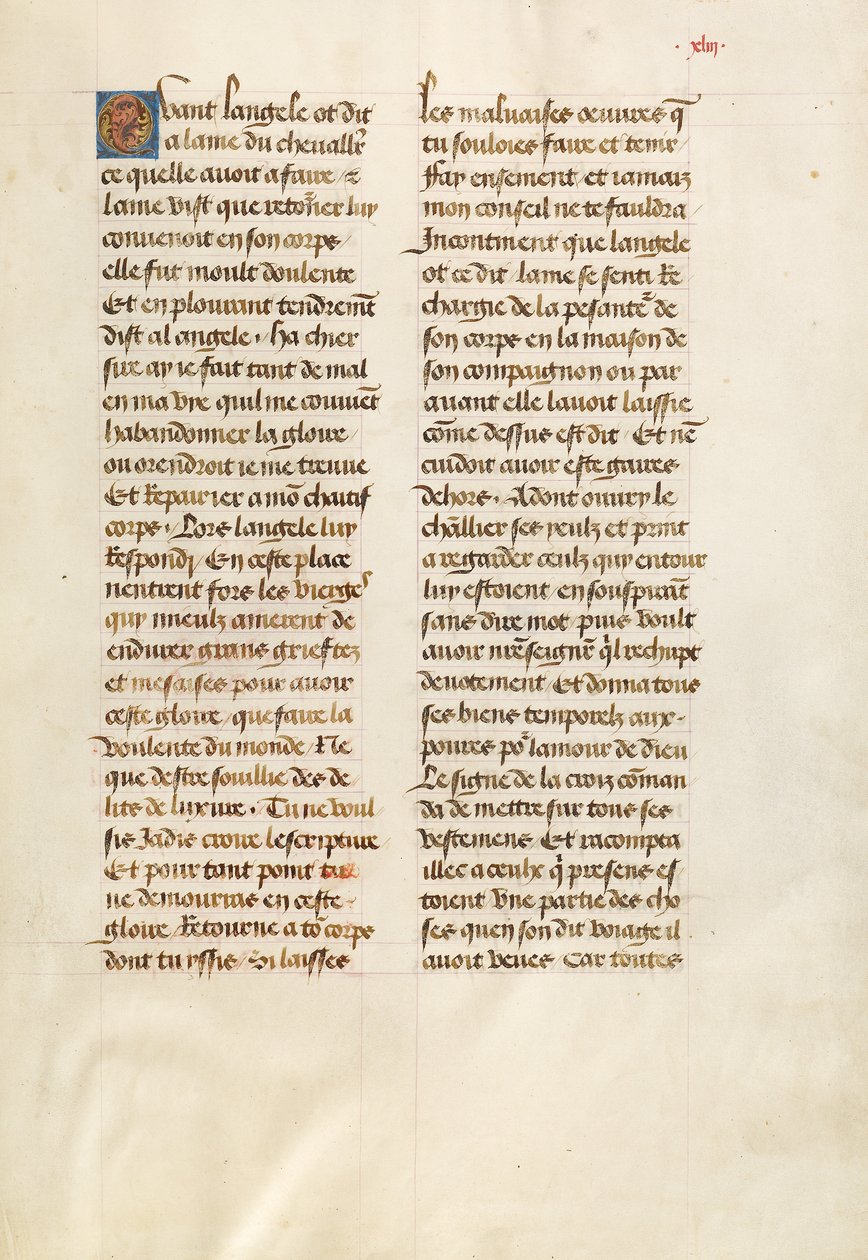 · xliii ·
Quant langele ot dit
a lame du cheuallr̄
ce quelle auoit a faire / ⁊
lame vist que reto᷑ner luy
conuenoit en son corps /
elle fut moult doulente
Et en plourant tendremēt
dist al angele · ha chier
sire ay ie fait tant de mal
en ma vye quil me couuēt
habandonner la gloire /
ou orendroit ie me treuue
Et Repairier a mō chaitif
corps · Lors langele luy
Respondj / En ceste place
nentrent fors les vierges
quy mieulz amerent de
endurer grans grieftez
et mesaises pour auoir
ceste gloire / que faire la
voulente du monde / Ne
que destre souillie des de
lits de luxure · Tu ne voul
sis Jadis croire lescripture
Et pour tant point tu
ne demourras en ceste
gloire / Retourne a tō corps
dont tu yssis / Si laisses
les maluaises oeuures q̄
tu souloies faire et tenir /
Fay ensement / et iamaiz
mon conseil ne te fauldra /
Incontinent que langele
ot ce dit / lame se senti Re
chargie de la pesante᷑ de
son corps en la maison de
son compaignon ou par
auant elle lauoit laissie
cōme dessus est dit / Et nē
cuidoit auoir este gaires
dehors · Adont ouury le
chāllier ses yeulz et print
a regarder ceulz quy entour
luy estoient en souspirāt
sans dire mot / puis voult
auoir nr̄e seignr̄ q̇l rechupt
deuotement / Et donna tous
ses biens temporelz aux
poures po᷑ lamour de dieu
Le signe de la croiz cōman
da de mettre sur tous ses
vestemens / Et racompta
illec a ceulx q̇ presens es
toient vne partie des cho
ses quen son dit voiage il
auoit veues / Car toutes